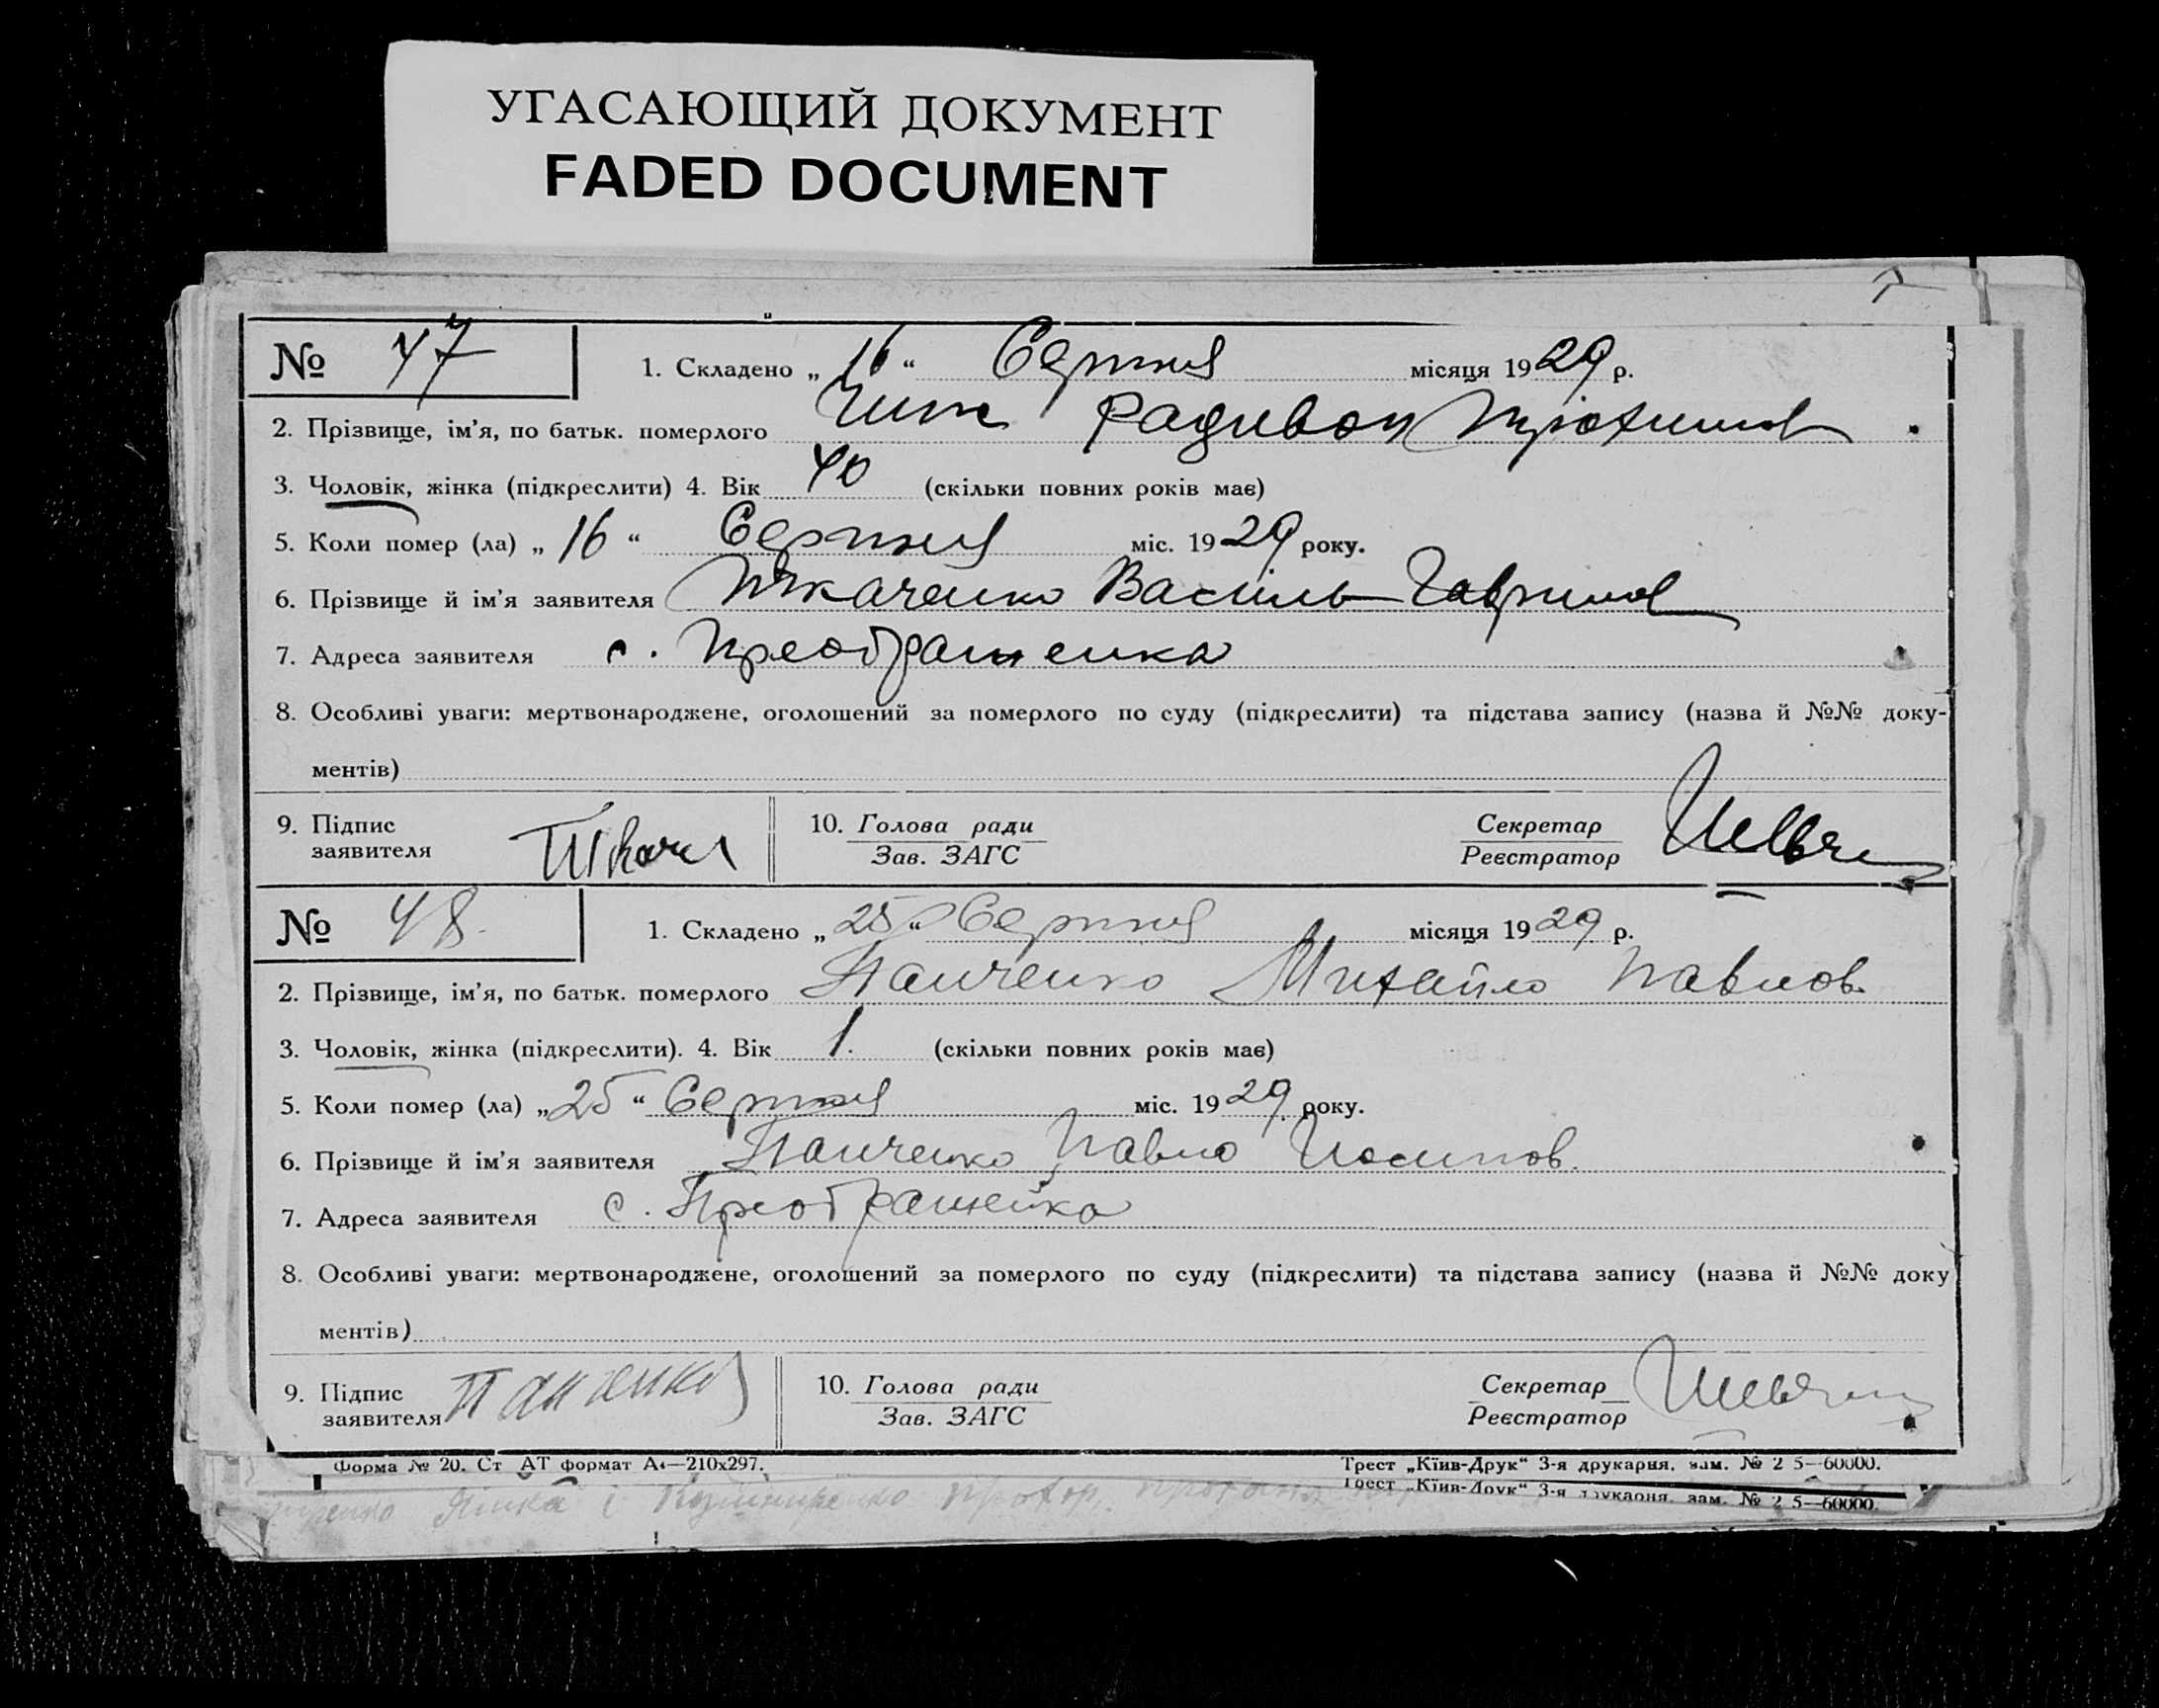 УГАСАЮЩИЙ ДОКУМЕНТ
FADED DOCUMENT
№ 47
1. Складено „ 16 “ Серпня місяця 1929 р.
2. Прізвище, ім'я, по батьк. померлого Радивон
3. Чоловік, жінка (підкреслити) 4. Вік 40 (скільки повних років має)
5. Коли помер (ла) „ 16 “ Серпня міс. 1929 року.
6. Прізвище й ім'я заявителя Ткаченко Василь Гаврилов
7. Адреса заявителя с. Преображенка
8. Особливі уваги: мертвонароджене, оголошений за померлого по суду (підкреслити) та підстава запису (назва й №№ доку-
ментів)
9. Підпис заявителя
10. Голова ради Зав. ЗАГС
Секретар Реєстратор
№ 48.
1. Складено „ 25 “ Серпня місяця 1929 р.
2. Прізвище, ім'я, по батьк. померлого Панченко Михайло Павлов.
3. Чоловік, жінка (підкреслити). 4. Вік 1. (скільки повних років має)
5. Коли помер (ла) „ 25 “ Серпня міс. 1929 року.
6. Прізвище й ім'я заявителя Панченко Павло Иосипов.
7. Адреса заявителя с. Преображенка
8. Особливі уваги: мертвонароджене, оголошений за померлого по суду (підкреслити) та підстава запису (назва й №№ доку
ментів)
9. Підпис заявителя
10. Голова ради Зав. ЗАГС
Секретар Реєстратор
Форма № 20. Ст АТ формат А4—210х297.
Трест „Київ-Друк“ 3-я друкарня, зам. № 2 5—60000.
Трест „Київ-Друк“ 3-я друкарня, зам. № 2 5—60000.